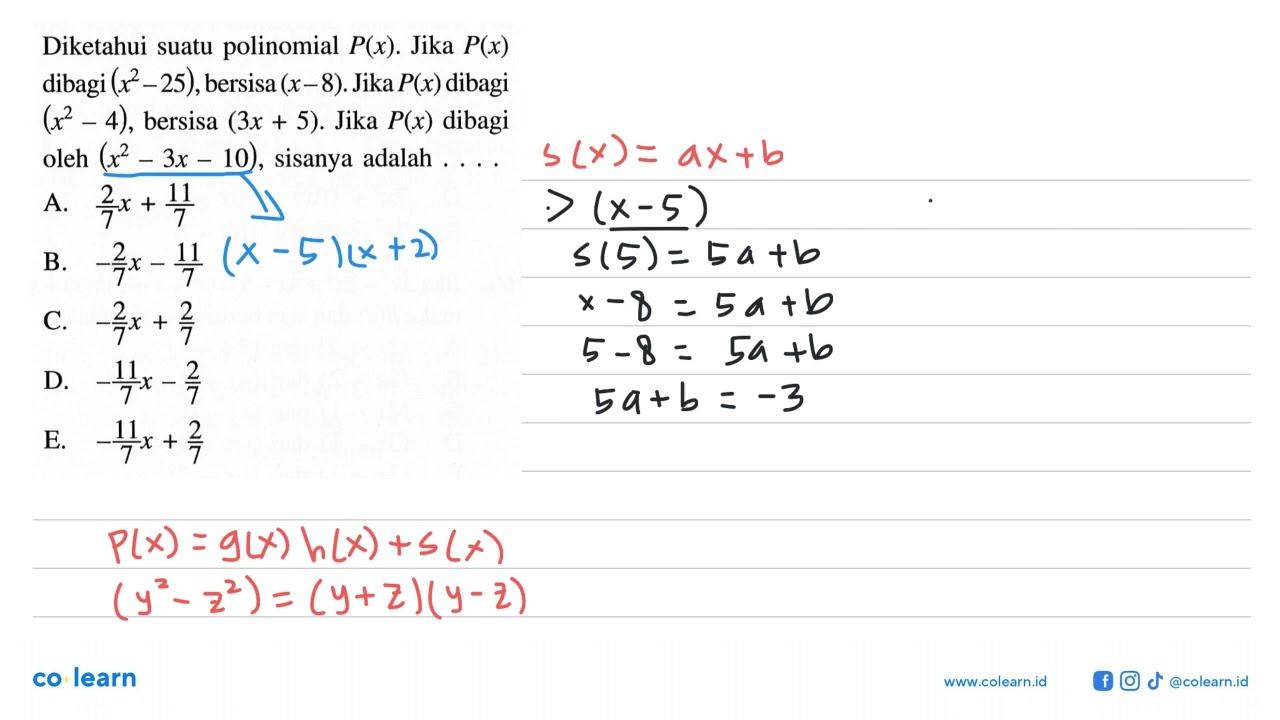 Diketahui suatu polinomial P(x). Jika P(x)
dibagi (x² – 25), bersisa (x – 8). Jika P(x) dibagi
(x² – 4), bersisa (3x + 5). Jika P(x) dibagi
oleh (x² – 3x – 10), sisanya adalah . . . .
A. 2/7 x + 11/7
B. –2/7 x – 11/7
C. –2/7 x + 2/7
D. –11/7 x – 2/7
E. –11/7 x + 2/7
(x – 5)(x + 2)
s(x) = ax + b
> (x – 5)
s(5) = 5a + b
x – 8 = 5a + b
5 – 8 = 5a + b
5a + b = –3
p(x) = g(x) h(x) + s(x)
(y² – z²) = (y + z)(y – z)
co learn
www.colearn.id
@colearn.id